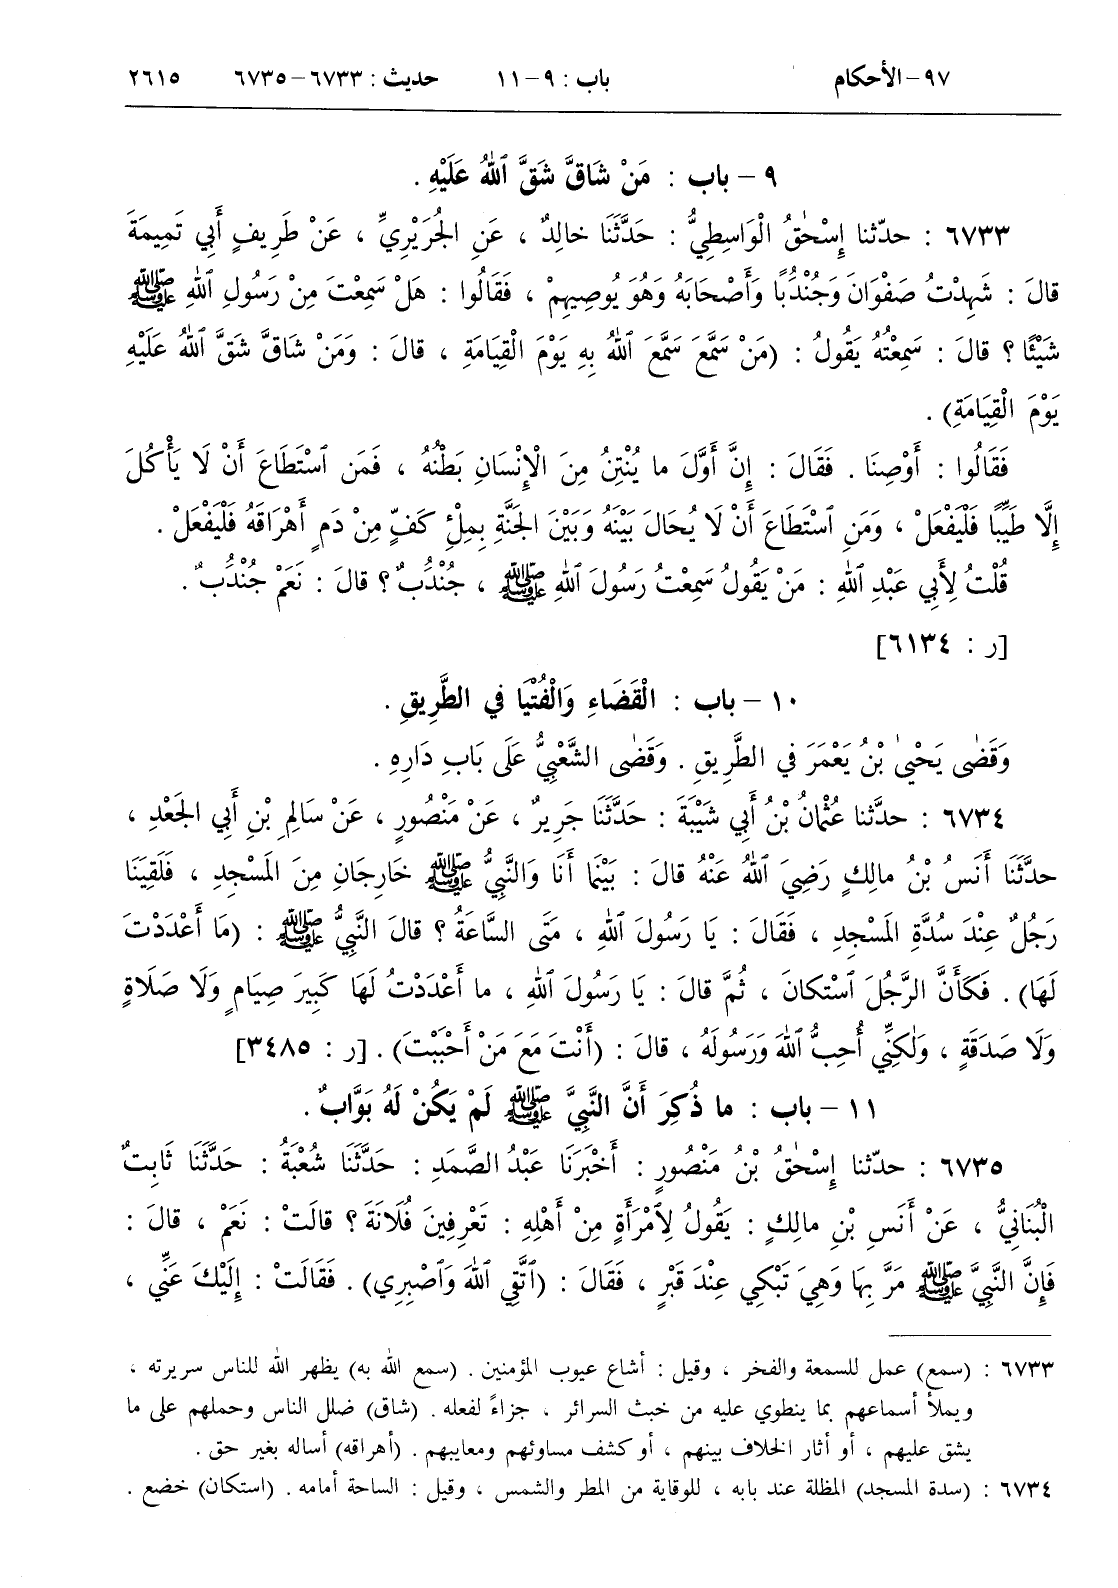 ٩٧ – الأحكام باب : ٩ – ١١ حديث : ٦٧٣٣ – ٦٧٣٥ ٢٦١٥
٩ – باب : مَنْ شَاقَّ شَقَّ ٱللهُ عَلَيْهِ .
٦٧٣٣ : حدّثنا إِسْحٰقُ الْوَاسِطِيُّ : حَدَّثَنَا خالِدٌ ، عَنِ الجُرَيْرِيِّ ، عَنْ طَرِيفٍ أَبِي تَمِيمَةَ
قالَ : شَهِدْتُ صَفْوَانَ وَجُنْدُبًا وَأَصْحَابَهُ وَهُوَ يُوصِيهِمْ ، فَقَالُوا : هَلْ سَمِعْتَ مِنْ رَسُولِ ٱللهِ ﷺ
شَيْئًا ؟ قالَ : سَمِعْتُهُ يَقُولُ : (مَنْ سَمَّعَ سَمَّعَ ٱللهُ بِهِ يَوْمَ الْقِيَامَةِ ، قالَ : وَمَنْ شَاقَّ شَقَّ ٱللهُ عَلَيْهِ
يَوْمَ الْقِيَامَةِ) .
فَقَالُوا : أَوْصِنَا . فَقَالَ : إِنَّ أَوَّلَ ما يُنْتِنُ مِنَ الْإِنْسَانِ بَطْنُهُ ، فَمَنِ ٱسْتَطَاعَ أَنْ لَا يَأْكُلَ
إِلَّا طَيِّبًا فَلْيَفْعَلْ ، وَمَنِ ٱسْتَطَاعَ أَنْ لَا يُحَالَ بَيْنَهُ وَبَيْنَ الجَنَّةِ بِمِلْءِ كَفٍّ مِنْ دَمٍ أَهْرَاقَهُ فَلْيَفْعَلْ .
قُلْتُ لِأَبِي عَبْدِ ٱللهِ : مَنْ يَقُولُ سَمِعْتُ رَسُولَ ٱللهِ ﷺ ، جُنْدُبٌ ؟ قالَ : نَعَمْ جُنْدُبٌ .
[ر : ٦١٣٤]
١٠ – باب : الْقَضَاءِ وَالْفُتْيَا فِي الطَّرِيقِ .
وَقَضٰى يَحْيىٰ بْنُ يَعْمَرَ فِي الطَّرِيقِ . وَقَضٰى الشَّعْبِيُّ عَلَى بَابِ دَارِهِ .
٦٧٣٤ : حدَّثنا عُثْمانُ بْنُ أَبِي شَيْبَةَ : حَدَّثَنَا جَرِيرٌ ، عَنْ مَنْصُورٍ ، عَنْ سَالِمِ بْنِ أَبِي الجَعْدِ ،
حدَّثَنَا أَنَسُ بْنُ مالِكٍ رَضِيَ ٱللهُ عَنْهُ قالَ : بَيْنَمَا أَنَا وَالنَّبِيُّ ﷺ خَارِجَانِ مِنَ المَسْجِدِ ، فَلَقِيَنَا
رَجُلٌ عِنْدَ سُدَّةِ المَسْجِدِ ، فَقَالَ : يَا رَسُولَ ٱللهِ ، مَتَى السَّاعَةُ ؟ قالَ النَّبِيُّ ﷺ : (مَا أَعْدَدْتَ
لَهَا) . فَكَأَنَّ الرَّجُلَ ٱسْتَكانَ ، ثُمَّ قالَ : يَا رَسُولَ ٱللهِ ، ما أَعْدَدْتُ لَهَا كَبِيرَ صِيَامٍ وَلَا صَلَاةٍ
وَلَا صَدَقَةٍ ، وَلٰكِنِّي أُحِبُّ ٱللهَ وَرَسُولَهُ ، قالَ : (أَنْتَ مَعَ مَنْ أَحْبَبْتَ) . [ر : ٣٤٨٥]
١١ – باب : ما ذُكِرَ أَنَّ النَّبِيَّ ﷺ لَمْ يَكُنْ لَهُ بَوَّابٌ .
٦٧٣٥ : حدّثنا إِسْحٰقُ بْنُ مَنْصُورٍ : أَخْبَرَنَا عَبْدُ الصَّمَدِ : حَدَّثَنَا شُعْبَةُ : حَدَّثَنَا ثَابِتٌ
الْبُنَانِيُّ ، عَنْ أَنَسِ بْنِ مالِكٍ : يَقُولُ لِٱمْرَأَةٍ مِنْ أَهْلِهِ : تَعْرِفِينَ فُلَانَةَ ؟ قالَتْ : نَعَمْ ، قالَ :
فَإِنَّ النَّبِيَّ ﷺ مَرَّ بِهَا وَهِيَ تَبْكِي عِنْدَ قَبْرٍ ، فَقَالَ : (ٱتَّقِي ٱللهَ وَٱصْبِرِي) . فَقَالَتْ : إِلَيْكَ عَنِّي ،
٦٧٣٣ : (سمع) عمل للسمعة والفخر ، وقيل : أشاع عيوب المؤمنين . (سمع الله به) يظهر الله للناس سريرته ،
ويملأ أسماعهم بما ينطوي عليه من خبث السرائر ، جزاءً لفعله . (شاق) ضلل الناس وحملهم على ما
يشق عليهم ، أو أثار الخلاف بينهم ، أو كشف مساوئهم ومعايبهم . (أهراقه) أساله بغير حق .
٦٧٣٤ : (سدة المسجد) المظلة عند بابه ، للوقاية من المطر والشمس ، وقيل : الساحة أمامه . (استكان) خضع .